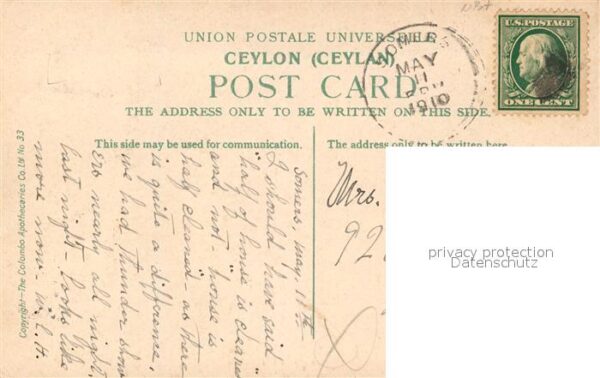 UNION POSTALE UNIVERSELLE
CEYLON (CEYLAN)
POST CARD
THE ADDRESS ONLY TO BE WRITTEN ON THIS SIDE.
SOMERS
MAY
11
1910
U.S. POSTAGE
ONE CENT
This side may be used for communication.
The address only to be written here.
Somers, May, 11th
I should have said
"half of house is cleaned"
and not - "house is
half cleaned" - as there
is quite a difference.
We had Thunder show
ers nearly all night,
last night - looks like
more now - W.L.H.
Mrs.
92
privacy protection
Datenschutz
Copyright—The Colombo Apothecaries Co. Ltd No. 33